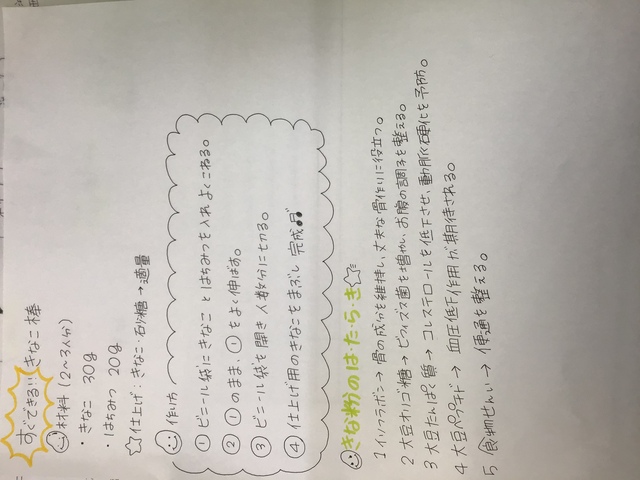 すぐできる!! きなこ棒
材料 (2〜3人分)
・きなこ 30g
・はちみつ 20g
☆仕上げ:きなこ・砂糖→適量
作り方
① ビニール袋にきなことはちみつを入れよくこねる。
② ①のまま、①をよく伸ばす。
③ ビニール袋を開き人数分に切る。
④ 仕上げ用のきなこをまぶし 完成♪
きな粉のは・た・ら・き☆
1 イソフラボン→骨の成分を維持し、丈夫な骨作りに役立つ。
2 大豆オリゴ糖→ビフィズス菌を増やし、お腹の調子を整える。
3 大豆たんぱく質→コレステロールを低下させ、動脈硬化を予防。
4 大豆ペプチド→血圧低下作用が期待される。
5 食物せんい→便通を整える。